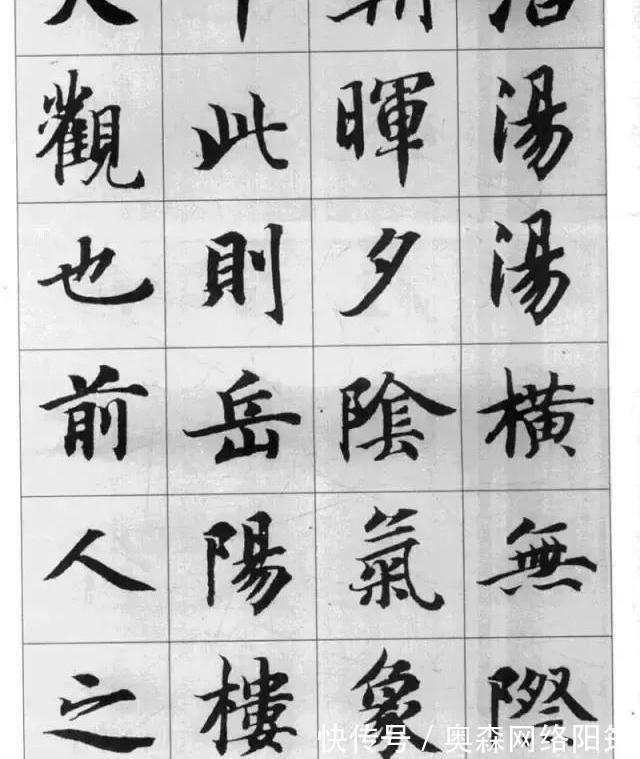 浩湯湯橫無際
朝暉夕陰氣象
千此則岳陽樓
大觀也前人之
快传号 / 奥森网络阳